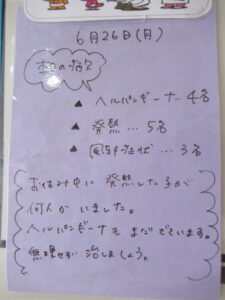 6月26日(月)
本日の病欠
▲ ヘルパンギーナ… 4名
▲ 発熱 … 5名
▲ 風邪症状 … 3名
お休み中に 発熱した子が
何人か いました。
ヘルパンギーナも まだ でています。
無理せず 治しましょう。